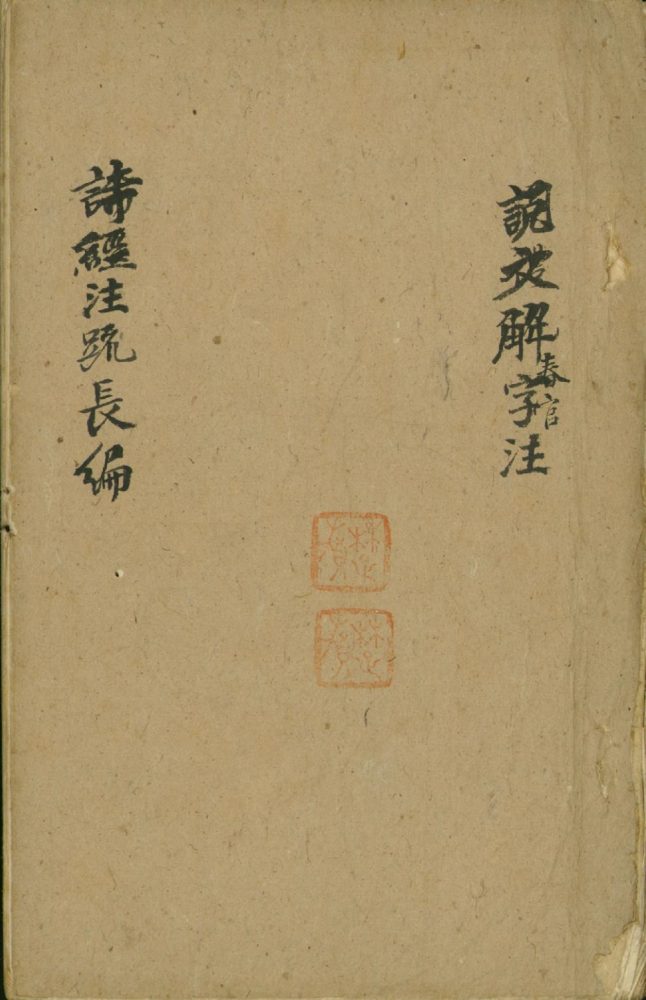 說文解字注
春官
詩經注疏長編